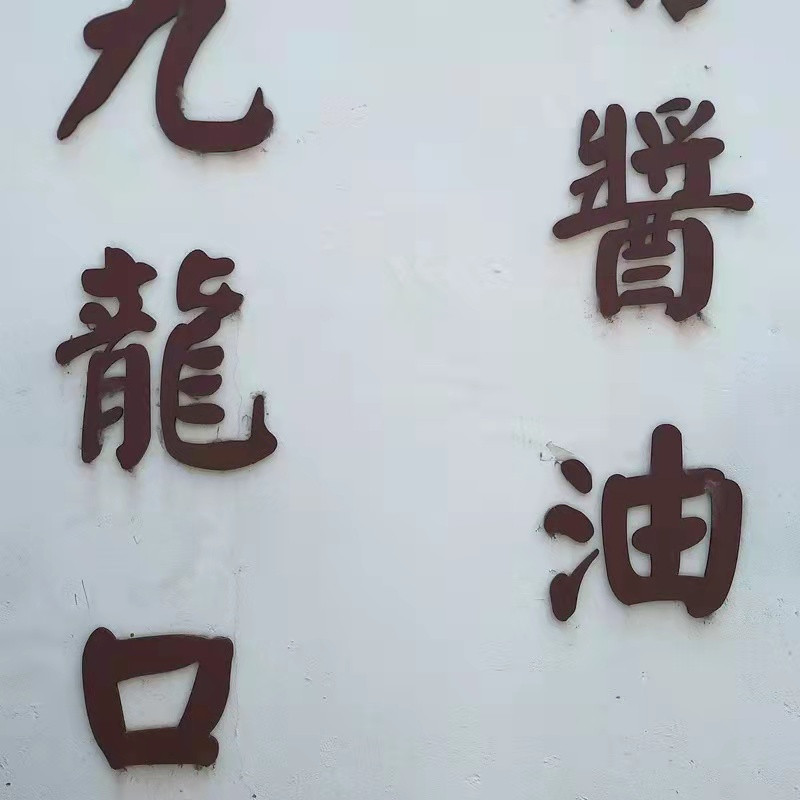 醬油
九龍口